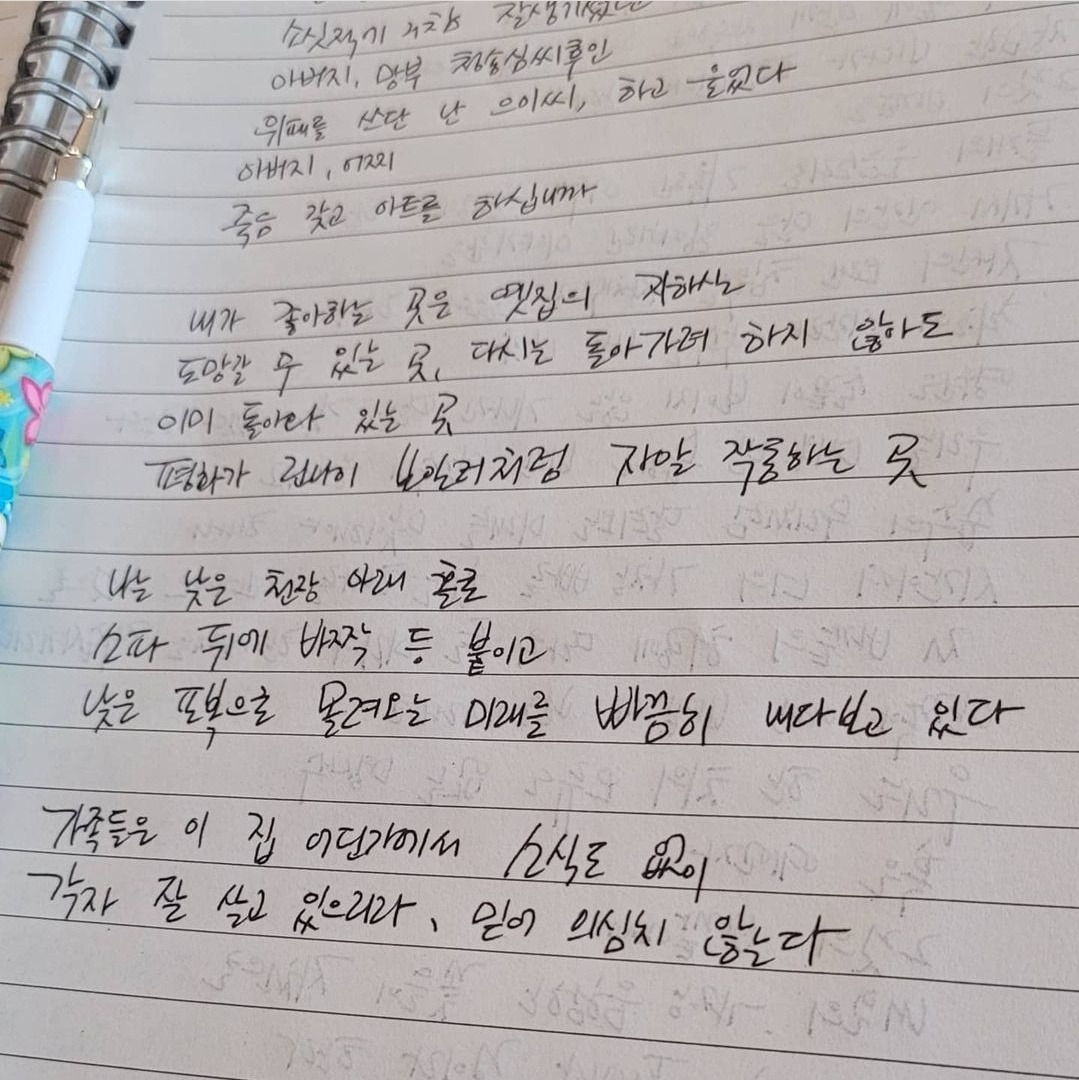 소싯적에 거참 잘생기셨던
아버지, 망부 청송심씨후인
위패를 쓰단 난 으이씨, 하고 울었다
아버지, 어찌
죽음 갖고 아트를 하십니까
내가 좋아하는 곳은 옛집의 지하실
도망갈 수 있는 곳, 다시는 돌아가려 하지 않아도
이미 돌아와 있는 곳
평화가 린나이 보일러처럼 자알 작동하는 곳
나는 낮은 천장 아래 홀로
소파 뒤에 바짝 등 붙이고
낮은 포복으로 몰려오는 미래를 빠끔히 내다보고 있다
가족들은 이 집 어딘가에서 소식도 없이
각자 잘 살고 있으리라, 믿어 의심치 않는다